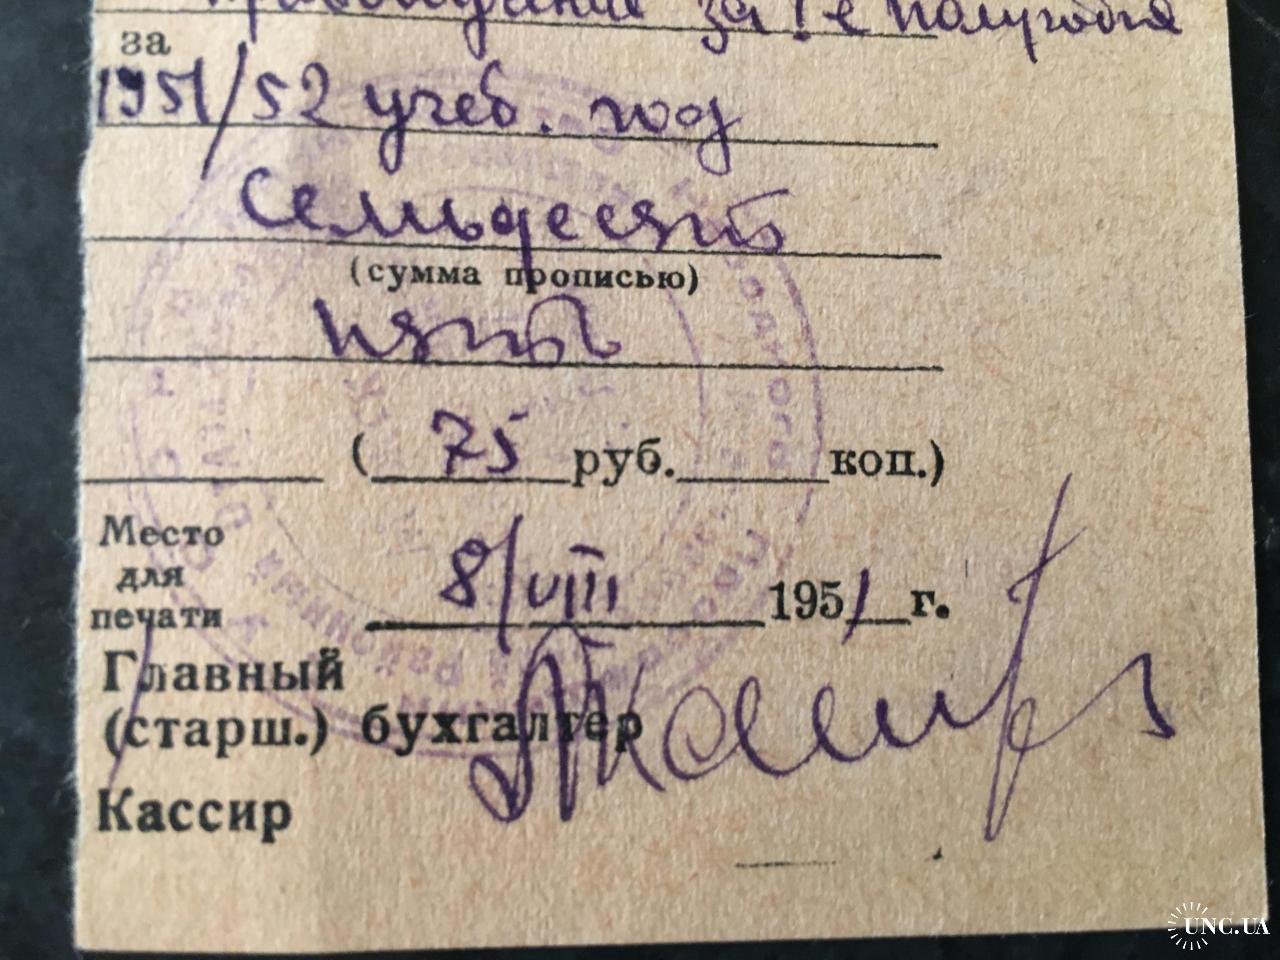 за I-е полугодие
за
1951/52 учеб. год
Семьдесят
(сумма прописью)
пять
( 75 руб. коп.)
Место
для
печати
8/VIII 1951 г.
Главный
(старш.) бухгалтер
Кассир
UNC.UA